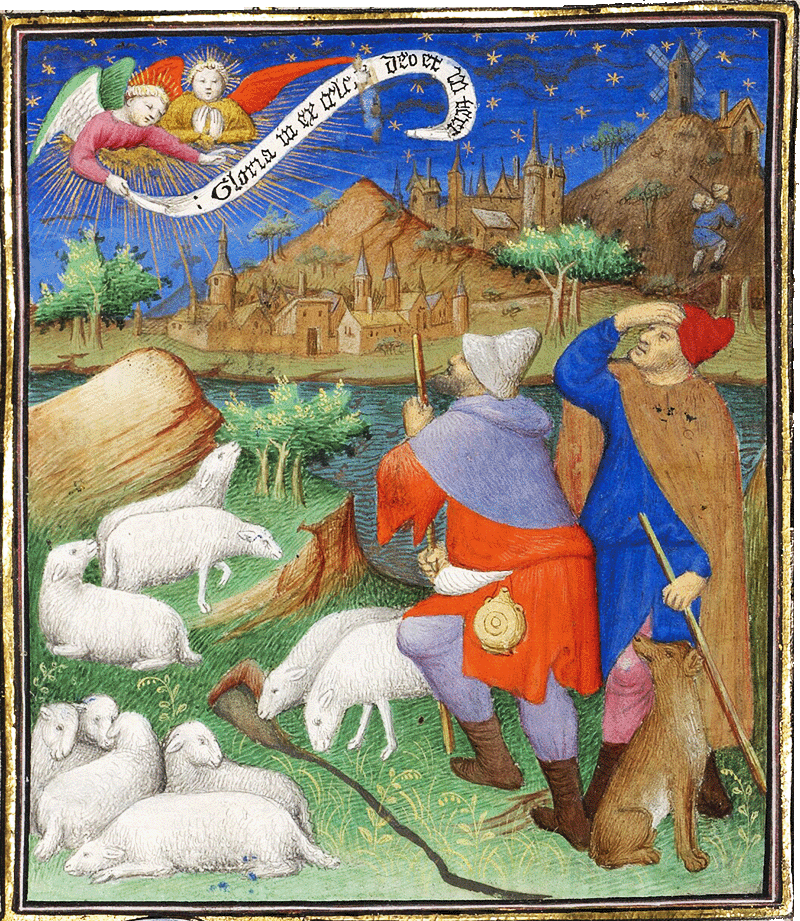 Gloria in ex celc deo et in terr